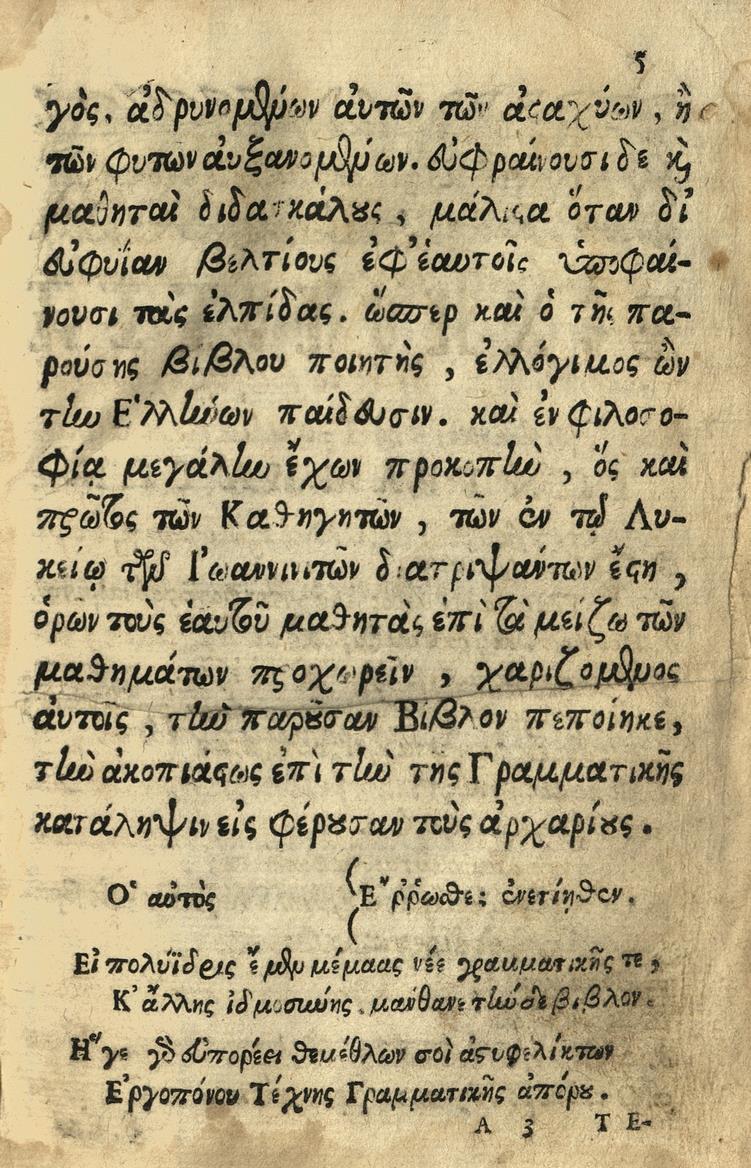 5
γὸς, ἁδρυνομένων αὐτῶν τῶν ἀσταχύων, ἢ
τῶν φυτῶν αὐξανομένων. εὐφραίνουσι δε καὶ
μαθηταὶ διδασκάλους, μάλιστα ὅταν δι'
εὐφυΐαν βελτίους ἐφ' ἑαυτοῖς ὑποφαί-
νουσι τὰς ἐλπίδας. ὥσπερ καὶ ὁ τῆς πα-
ρούσης βίβλου ποιητὴς, ἐλλόγιμος ὢν
τὴν Ἑλλήνων παίδευσιν. καὶ ἐν φιλοσο-
φίᾳ μεγάλην ἔχων προκοπὴν, ὅς καὶ
πρῶτος τῶν Καθηγητῶν, τῶν ἐν τῷ Λυ-
κείῳ τῶν Ἰωαννινιτῶν διατριψάντων ἔστη,
ὁρῶν τοὺς ἑαυτοῦ μαθητὰς ἐπὶ τὰ μείζω τῶν
μαθημάτων προχωρεῖν, χαριζόμενος
αὐτοῖς, τὴν παροῦσαν Βίβλον πεποίηκε,
τὴν ἀκοπιάστως ἐπὶ τὴν τῆς Γραμματικῆς
κατάληψιν εἰς φέρουσαν τοὺς ἀρχαρίους.
Ὁ αὐτὸς
Ἔρρωσθε:
Εἰ πολύϊδρις ἔμεν μέμαας νέε γραμματικῆς τε,
Κ' ἄλλης ἰδμοσύνης. μάνθανε τήνδε βίβλον.
Ἥ γε γὰρ εὐπορέει θεμέθλων σοὶ ἀστυφελίκτων
Ἐργοπόνου Τέχνης Γραμματικῆς ἀπόρου.
A 3 ΤΕ-